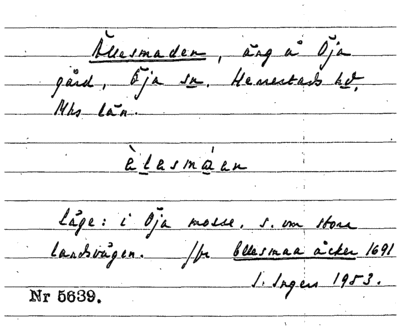 Ällesmaden, äng å Öja
gård, Öja sn. Herrestads hd,
Mhs län.
èlesmáen
Läge: i Öja mosse, s. om stora
landsvägen. jfr Ellesmaa åcker 1691
I. Ingers 1953.
Nr 5639.